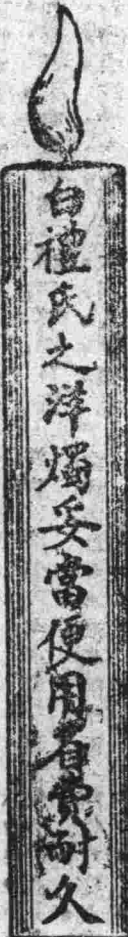 白禮氏之洋燭妥當便用省費耐久